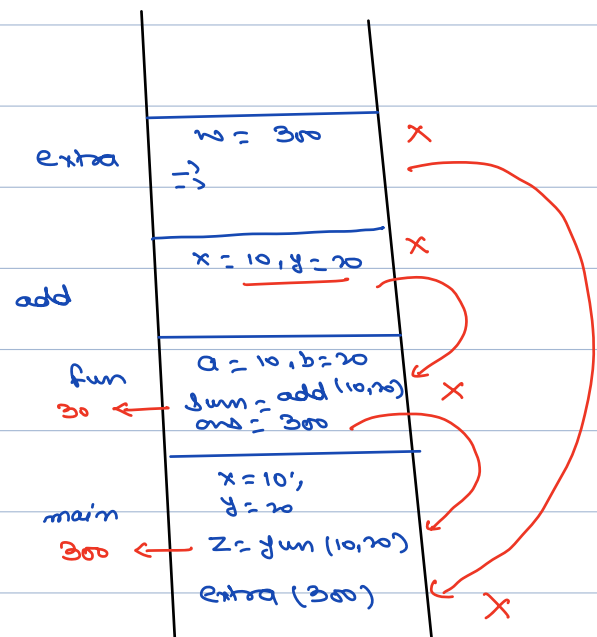 w = 300
extra
=>
x = 10, y = 20
add
a = 10, b = 20
fun
sum = add (10,20)
30
ans = 300
x = 10,
y = 20
main
z = fun (10,20)
300
extra (300)